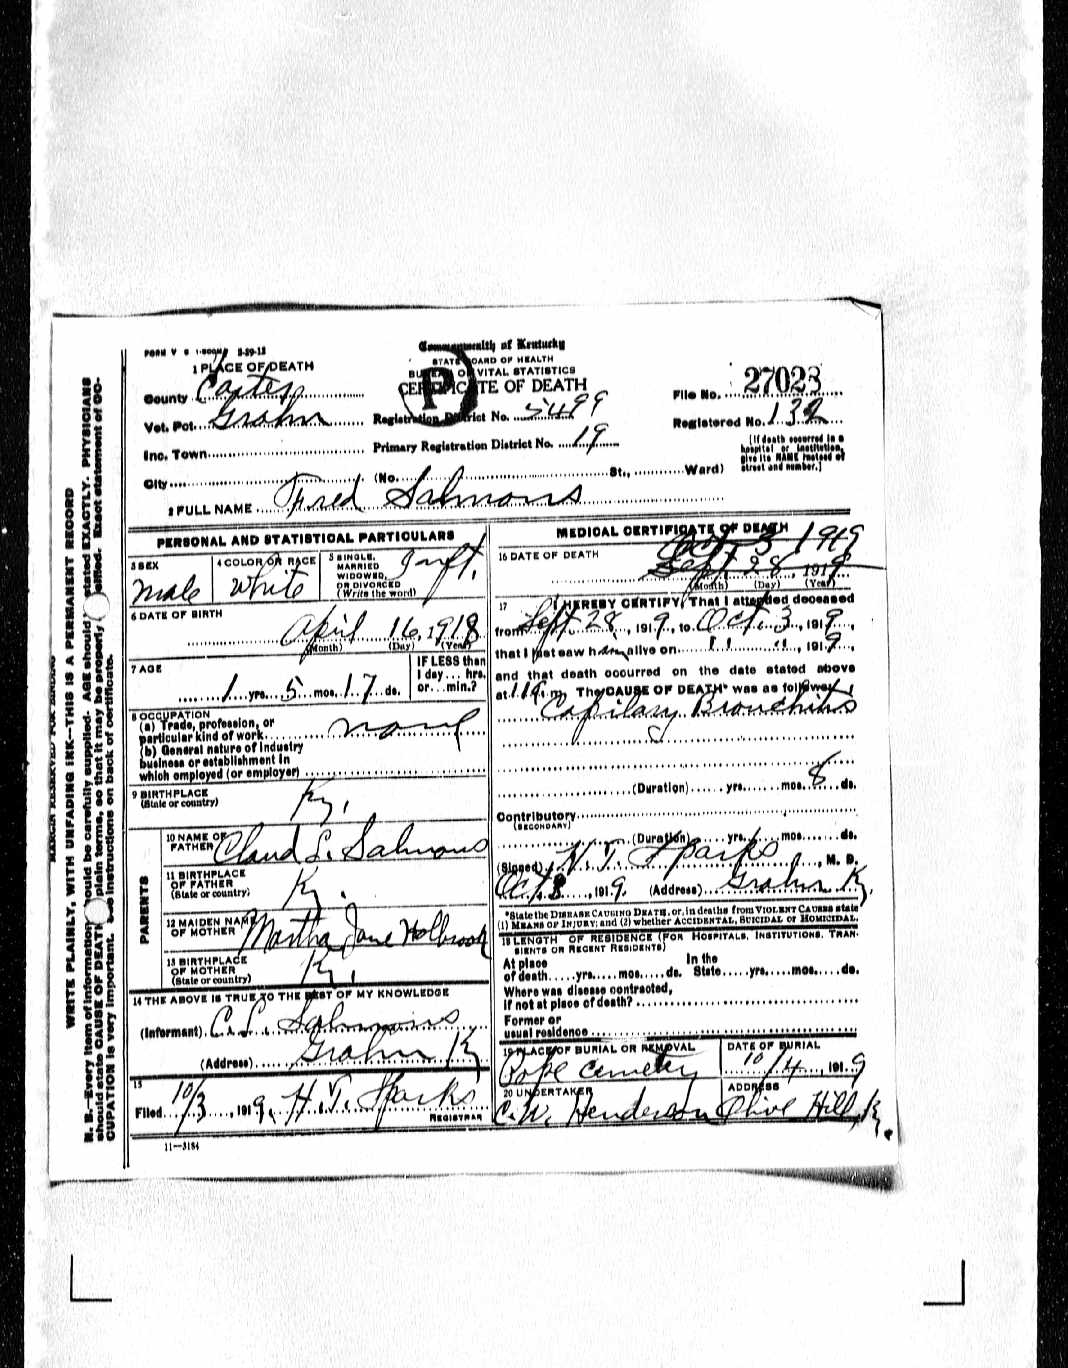 FORM V S 1-500M 3-29-18
Commonwealth of Kentucky
STATE BOARD OF HEALTH
BUREAU OF VITAL STATISTICS
CERTIFICATE OF DEATH
P
1 PLACE OF DEATH
County Carter
Vot. Pct. Grahn
Registration District No. 5499
Inc. Town
Primary Registration District No. 19
City (No. St., Ward)
File No. 27028
Registered No. 132
[If death occurred in a
hospital or institution,
give its NAME instead of
street and number.]
2 FULL NAME Fred Salmons
PERSONAL AND STATISTICAL PARTICULARS
3 SEX
male
4 COLOR OR RACE
white
5 SINGLE,
MARRIED
WIDOWED,
OR DIVORCED
(Write the word)
Inft.
6 DATE OF BIRTH
April 16, 1918
(Month) (Day) (Year)
7 AGE
1 yrs. 5 mos. 17 ds.
IF LESS than
1 day ... hrs.
or ... min.?
8 OCCUPATION
(a) Trade, profession, or
particular kind of work none
(b) General nature of industry
business or establishment in
which employed (or employer)
9 BIRTHPLACE
(State or country)
Ky.
PARENTS
10 NAME OF
FATHER
Claud L. Salmons
11 BIRTHPLACE
OF FATHER
(State or country)
Ky.
12 MAIDEN NAME
OF MOTHER
Martha Jane Holbrook
13 BIRTHPLACE
OF MOTHER
(State or country)
Ky.
14 THE ABOVE IS TRUE TO THE BEST OF MY KNOWLEDGE
(Informant) C. L. Salmons
(Address) Grahn Ky
15
Filed 10/3, 1919, H. T. Sparks
REGISTRAR
11—3184
MEDICAL CERTIFICATE OF DEATH
16 DATE OF DEATH
Oct 3 1919
Sept 28, 1919
(Month) (Day) (Year)
17 I HEREBY CERTIFY, That I attended deceased
from Sept 28, 1919, to Oct. 3, 1919,
that I last saw him alive on " ", 1919,
and that death occurred on the date stated above
at m. The CAUSE OF DEATH* was as follows:
Capilary Bronchitis
(Duration) yrs. mos. 8 ds.
Contributory
(SECONDARY)
(Duration) yrs. mos. ds.
(Signed) H. T. Sparks, M. D.
Oct 3, 1919 (Address) Grahn Ky.
*State the DISEASE CAUSING DEATH, or, in deaths from VIOLENT CAUSES state
(1) MEANS OF INJURY; and (2) whether ACCIDENTAL, SUICIDAL or HOMICIDAL.
18 LENGTH OF RESIDENCE (FOR HOSPITALS, INSTITUTIONS, TRAN-
SIENTS OR RECENT RESIDENTS)
At place In the
of death yrs. mos. ds. State yrs. mos. ds.
Where was disease contracted,
if not at place of death?
Former or
usual residence
19 PLACE OF BURIAL OR REMOVAL
Pope Cemetery
DATE OF BURIAL
10/4, 1919
20 UNDERTAKER
C. W. Henderson
ADDRESS
Olive Hill, Ky.
MARGIN RESERVED FOR BINDING
WRITE PLAINLY, WITH UNFADING INK—THIS IS A PERMANENT RECORD
N. B.—Every item of information should be carefully supplied. AGE should stated EXACTLY. PHYSICIANS
should state CAUSE OF DEATH plain terms, so that it may be properly Exact statement of OC-
CUPATION is very important. See instructions on back of certificate.